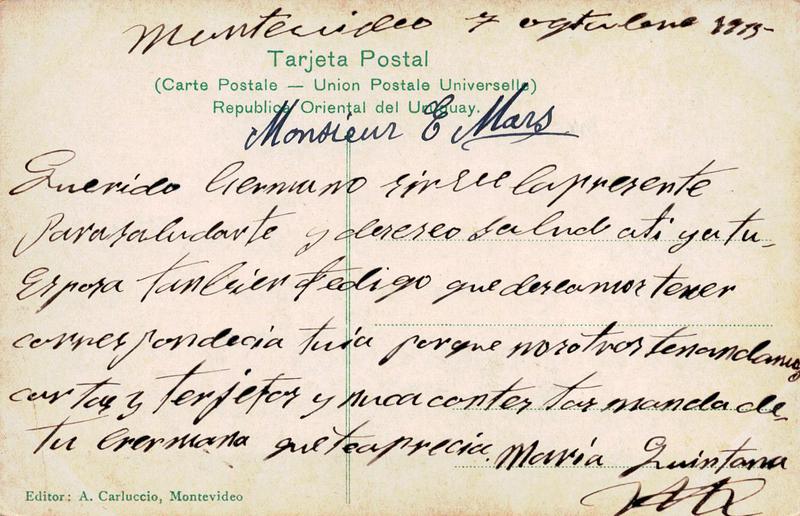 Montevideo 7 ogtubre 1915-
Tarjeta Postal
(Carte Postale — Union Postale Universelle)
Republica Oriental del Uruguay.
Monsieur E Mars
Querido Hermano sirve la presente
para saludarte y deseo salud ati y a tu-
Esposa tanbien te digo que deseamos tener
correspondecia tuia porque nosotros te mandamos
cartas y terjetas y nuca contestas manda de-
tu Hermana que te aprecia. María Quintana
Editor: A. Carluccio, Montevideo